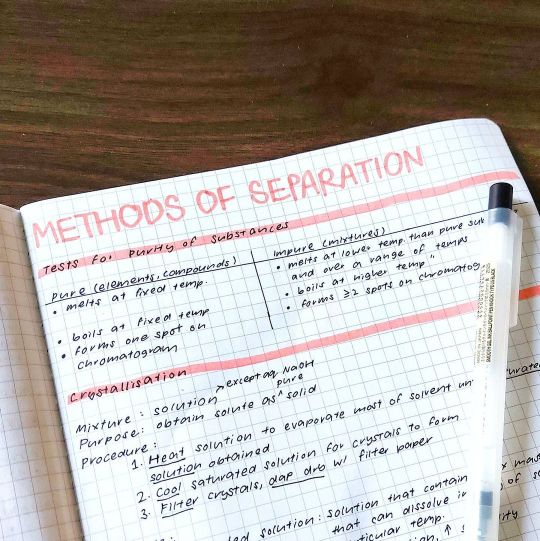 METHODS OF SEPARATION
Tests for purity of substances
pure (elements, compounds)
• melts at fixed temp.
• boils at fixed temp
• forms one spot on
chromatogram
impure (mixtures)
• melts at lower temp. than pure sub
and over a range of temps
• boils at higher temp "
• forms ≥2 spots on chromatog
crystallisation
Mixture : solution → except aq. NaOH
Purpose: obtain solute as ^ pure solid
Procedure :
1. Heat solution to evaporate most of solvent un
solution obtained
2. Cool saturated solution for crystals to form
3. Filter crystals, dap dry w/ filter paper
ed solution : solution that contain
that can dissolve in
particular temp.